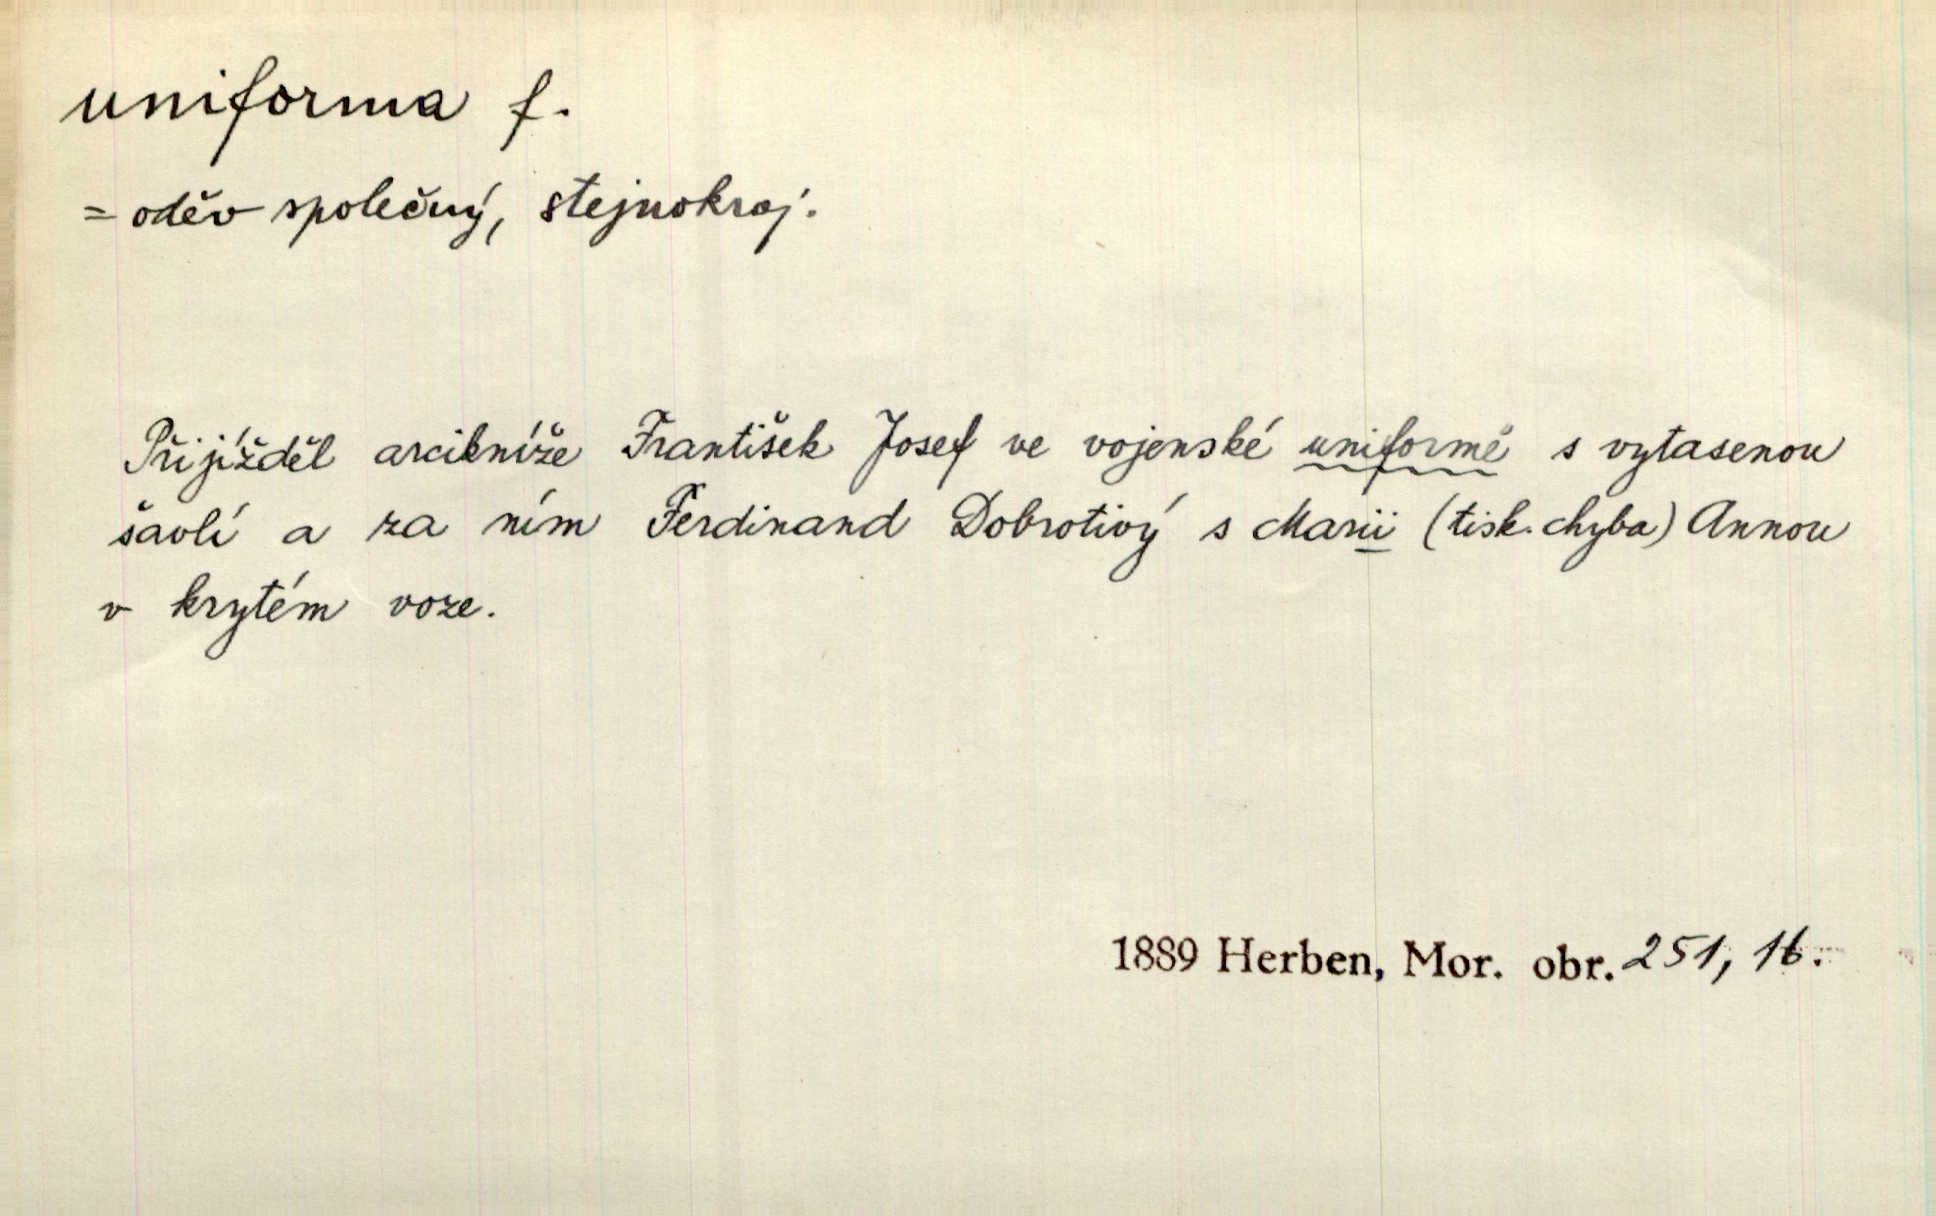 uniforma f.
= oděv společný, stejnokroj.
Přijížděl arcikníže František Josef ve vojenské uniformě s vytasenou
šavlí a za ním Ferdinand Dobrotivý s Marii (tisk. chyba) Annou
v krytém voze.
1889 Herben, Mor. obr. 251, 16.